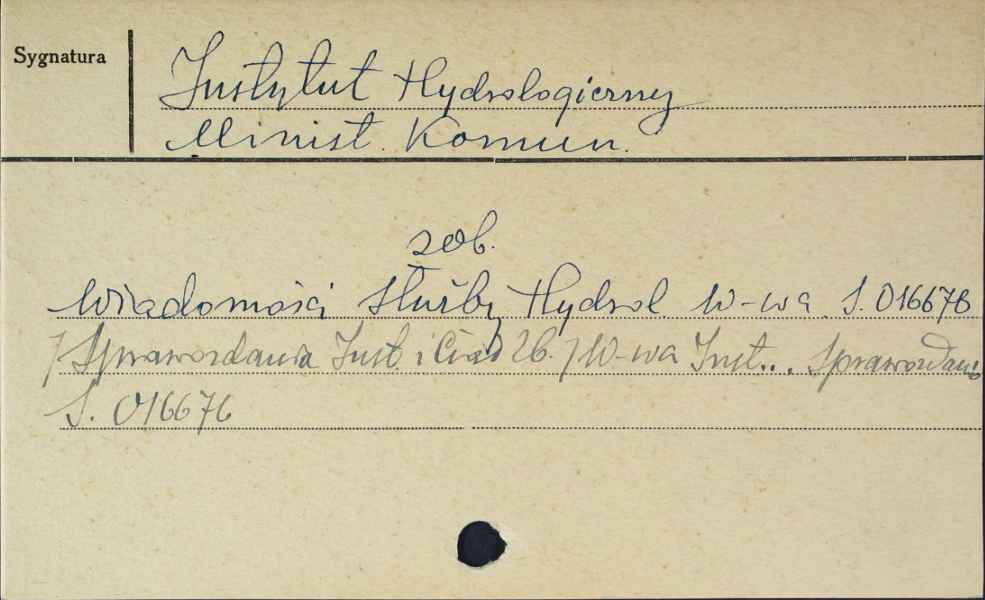 Sygnatura
Instytut Hydrologiczny
Minist. Komun.
zob.
Wiadomości Służby Hydrol W-wa S. 016676
/ Sprawozdania Inst. i 2b. / W-wa Inst... Sprawozdania
S. 016676